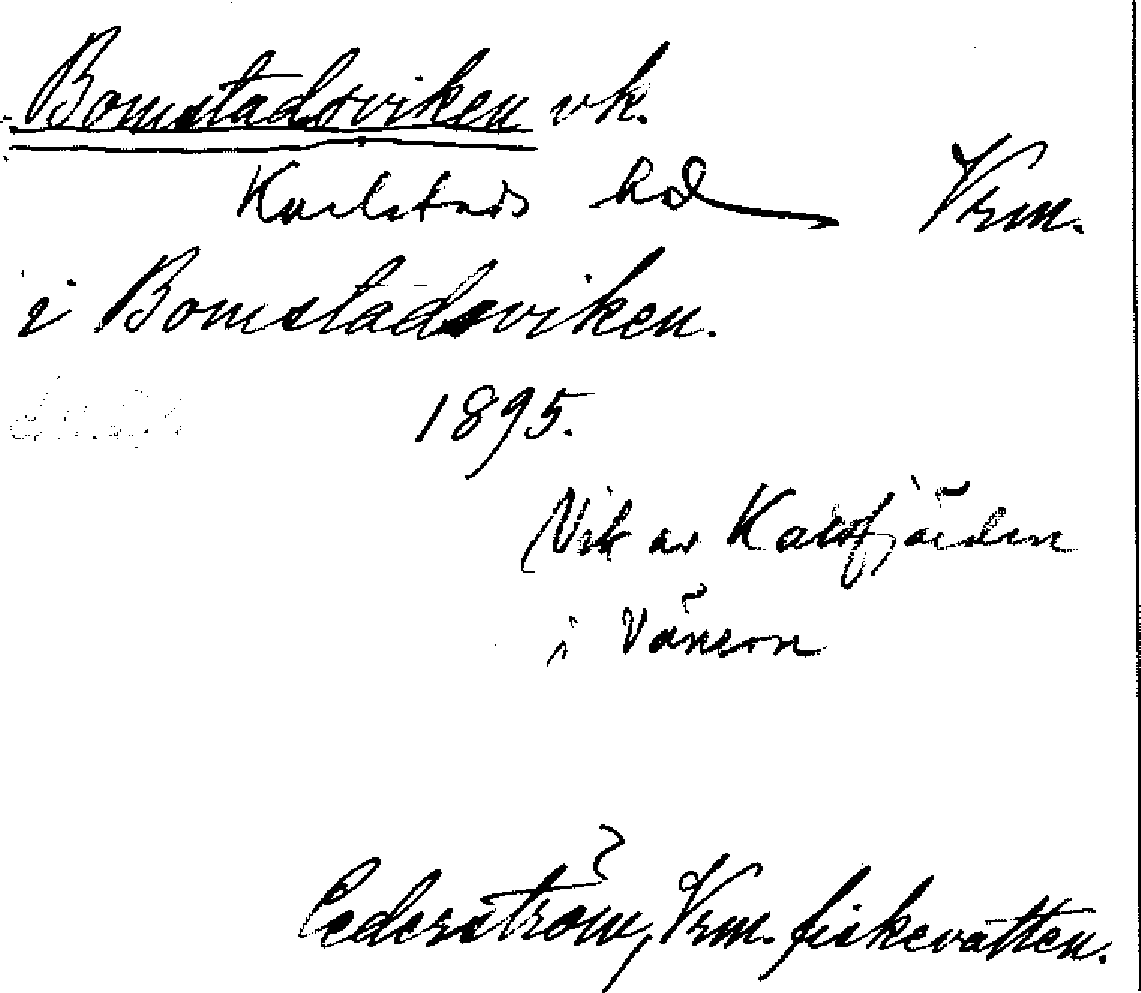 Bomstadsviken vk.
Karlstads hd Vrm.
i Bomstadsviken.
1895.
Vik av Kattfjärden
i Vänern
Cederström, Vrm. fiskevatten.